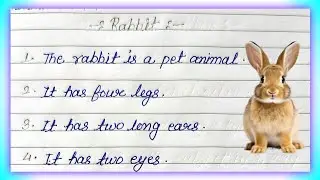 Rabbit
1. The rabbit is a pet animal.
2. It has four legs.
3. It has two long ears.
4. It has two eyes.